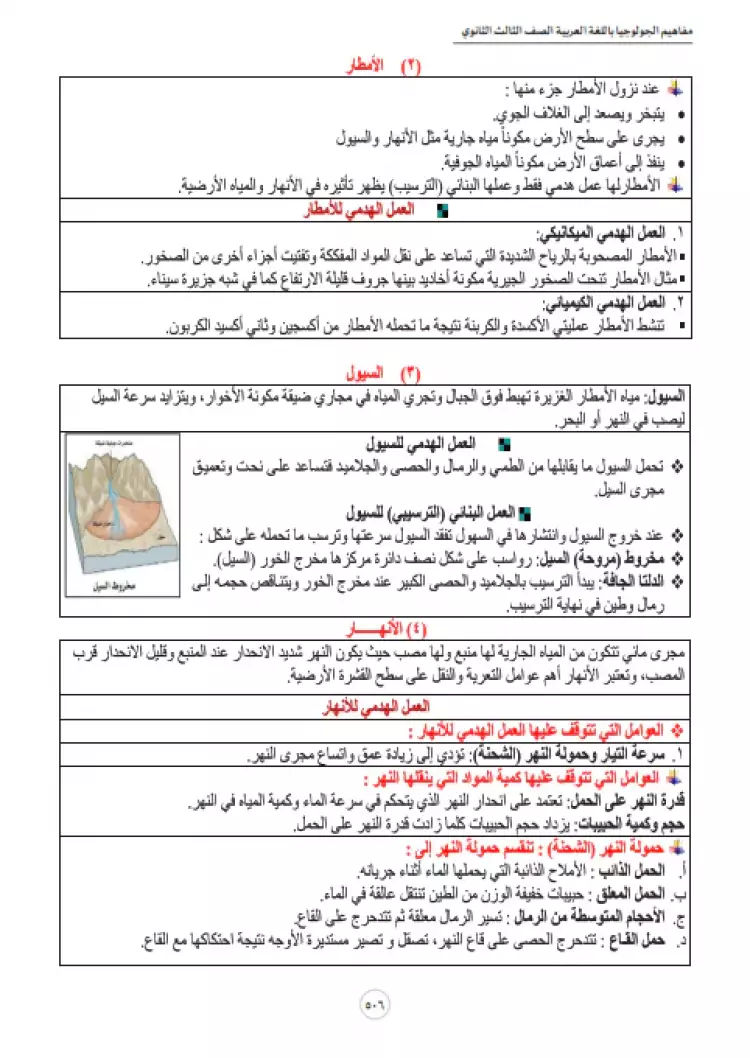 مفاهيم الجولوجيا باللغة العربية الصف الثالث الثانوي
(٢) الأمطار
عند نزول الأمطار جزء منها :
• يتبخر ويصعد إلى الغلاف الجوي.
• يجرى على سطح الأرض مكوناً مياه جارية مثل الأنهار والسيول
• ينفذ إلى أعماق الأرض مكوناً المياه الجوفية.
الأمطارلها عمل هدمي فقط وعملها البنائي (الترسيب) يظهر تأثيره في الأنهار والمياه الأرضية.
العمل الهدمي للأمطار
١. العمل الهدمي الميكانيكي:
▪ الأمطار المصحوبة بالرياح الشديدة التي تساعد على نقل المواد المفككة وتفتيت أجزاء أخرى من الصخور.
▪ مثال الأمطار تنحت الصخور الجيرية مكونة أخاديد بينها جروف قليلة الارتفاع كما في شبه جزيرة سيناء.
٢. العمل الهدمي الكيميائي:
▪ تنشط الأمطار عمليتي الأكسدة والكربنة نتيجة ما تحمله الأمطار من أكسجين وثاني أكسيد الكربون.
(٣) السيول
السيول: مياه الأمطار الغزيرة تهبط فوق الجبال وتجري المياه في مجاري ضيقة مكونة الأخوار، ويتزايد سرعة السيل
ليصب في النهر أو البحر.
العمل الهدمي للسيول
❖ تحمل السيول ما يقابلها من الطمي والرمال والحصى والجلاميد فتساعد على نحت وتعميق
مجرى السيل.
العمل البنائي (الترسيبي) للسيول
❖ عند خروج السيول وانتشارها في السهول تفقد السيول سرعتها وترسب ما تحمله على شكل :
❖ مخروط (مروحة) السيل: رواسب على شكل نصف دائرة مركزها مخرج الخور (السيل).
❖ الدلتا الجافة: يبدأ الترسيب بالجلاميد والحصى الكبير عند مخرج الخور ويتناقص حجمه إلى
رمال وطين في نهاية الترسيب.
مخروط السيل
(٤) الأنهـــــار
مجرى مائي تتكون من المياه الجارية لها منبع ولها مصب حيث يكون النهر شديد الانحدار عند المنبع وقليل الانحدار قرب
المصب، وتعتبر الأنهار أهم عوامل التعرية والنقل على سطح القشرة الأرضية.
العمل الهدمي للأنهار
❖ العوامل التي تتوقف عليها العمل الهدمي للأنهار :
١. سرعة التيار وحمولة النهر (الشحنة): تؤدي إلى زيادة عمق واتساع مجرى النهر.
العوامل التي تتوقف عليها كمية المواد التي ينقلها النهر :
قدرة النهر على الحمل: تعتمد على انحدار النهر الذي يتحكم في سرعة الماء وكمية المياه في النهر.
حجم وكمية الحبيبات: يزداد حجم الحبيبات كلما زادت قدرة النهر على الحمل.
حمولة النهر (الشحنة) : تنقسم حمولة النهر إلى :
أ. الحمل الذائب : الأملاح الذائبة التي يحملها الماء أثناء جريانه.
ب. الحمل المعلق : حبيبات خفيفة الوزن من الطين تنتقل عالقة في الماء.
ج. الأحجام المتوسطة من الرمال : تسير الرمال معلقة ثم تتدحرج على القاع.
د. حمل القاع : تتدحرج الحصى على قاع النهر، تصقل و تصير مستديرة الأوجه نتيجة احتكاكها مع القاع.
٥٠٦